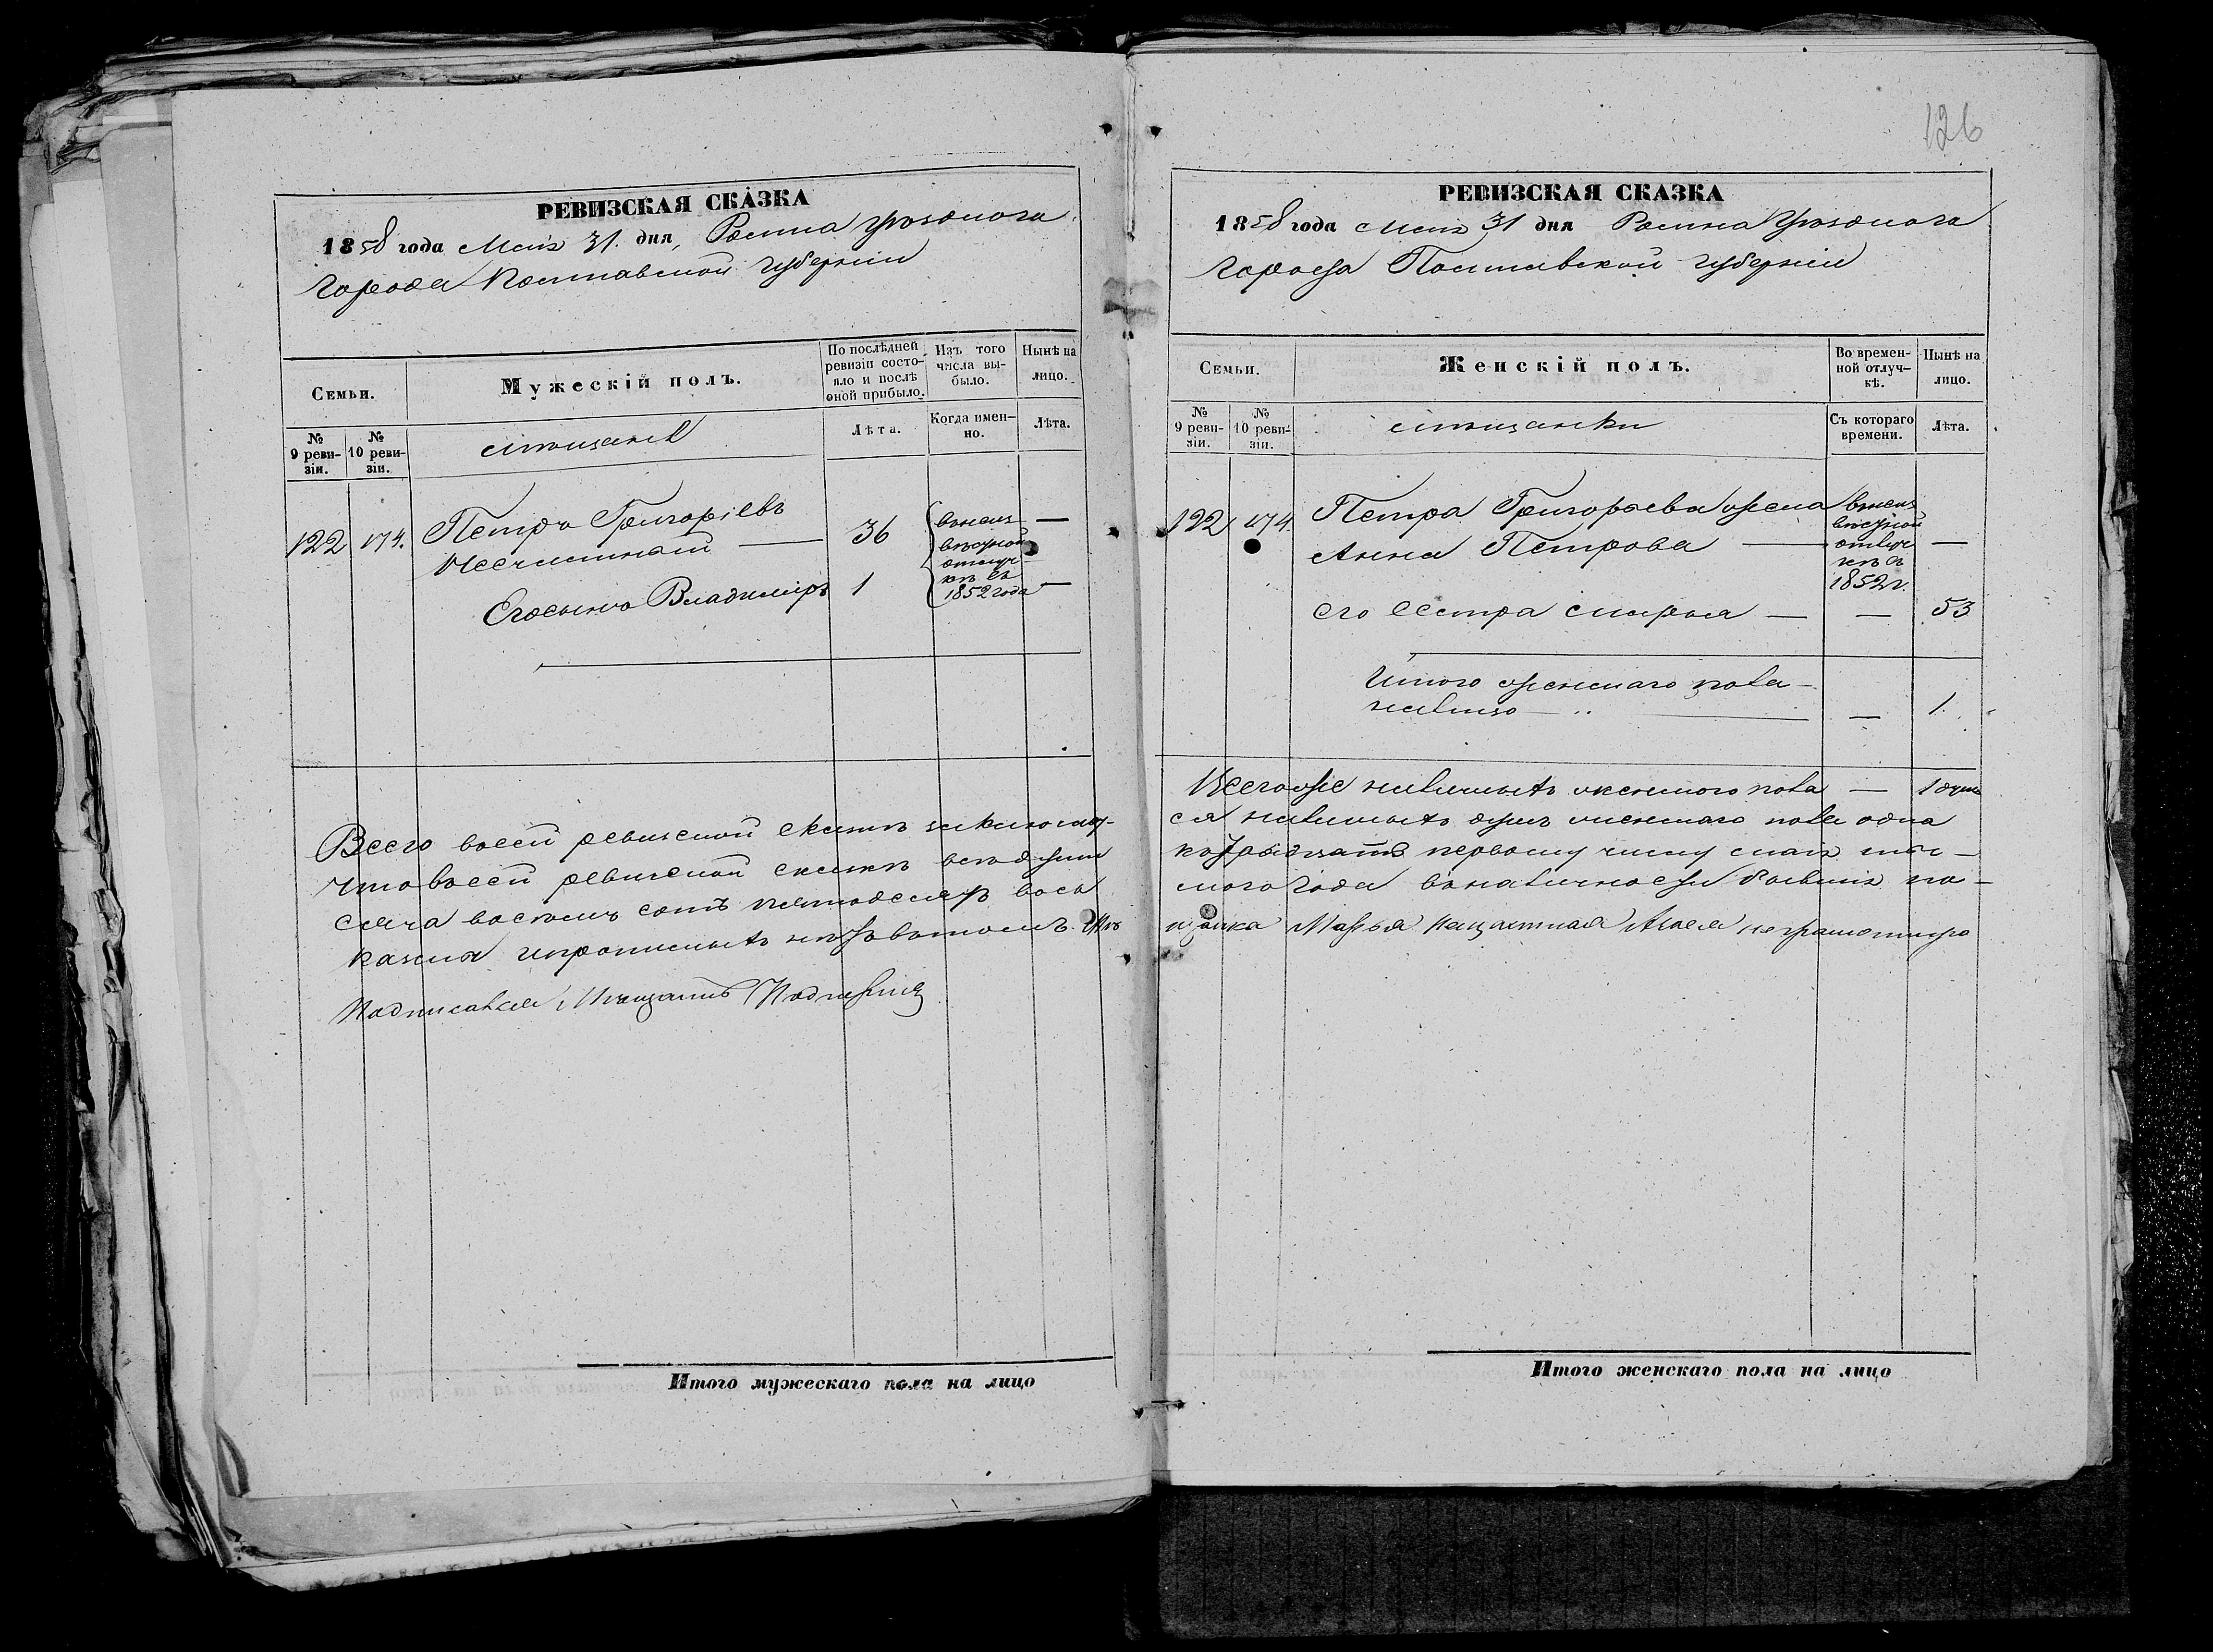 126
РЕВИЗСКАЯ СКАЗКА
1858 года Маія 31. дня, Ромна уѣзднаго
города Полтавской губерніи
Семьи.
Мужескій полъ.
По послѣдней ревизіи состояло и послѣ оной прибыло.
Изъ того числа выбыло.
Нынѣ на лицо.
№ 9 ревизіи.
№ 10 ревизіи.
мѣщане
Лѣта.
Когда именно.
Лѣта.
122 174. Петръ Григоріевъ 36 —
въ неизвѣстной отлучкѣ съ 1852 года
Его сынъ Владимиръ 1 —
Всего въ сей ревизской сказкѣ
что въ сей ревизской сказкѣ всѣ души
сяча восемь сотъ пятьдесятъ вось
казна и прописныхъ нѣтъ въ томъ
Подписался Мѣщанинъ
Итого мужескаго пола на лицо
РЕВИЗСКАЯ СКАЗКА
1858 года Маія 31 дня Ромна Уѣзднаго
Города Полтавской губерніи
Семьи.
Женскій полъ.
Во временной отлучкѣ.
Нынѣ на лицо.
№ 9 ревизіи.
№ 10 ревизіи.
мѣщанки
Съ котораго времени.
Лѣта.
122 174. Петра Григорьева жена
Анна Петрова — —
въ неизвѣстной отлучкѣ съ 1852 г.
его сестра Марья — — 53
Итого женскаго пола
налицо — — 1
Всего же наличныхъ женского пола — 1 душа
ся наличныхъ душъ женскаго пола одна
первому числу
мого года въ наличности
Марья неграмотную
Итого женскаго пола на лицо